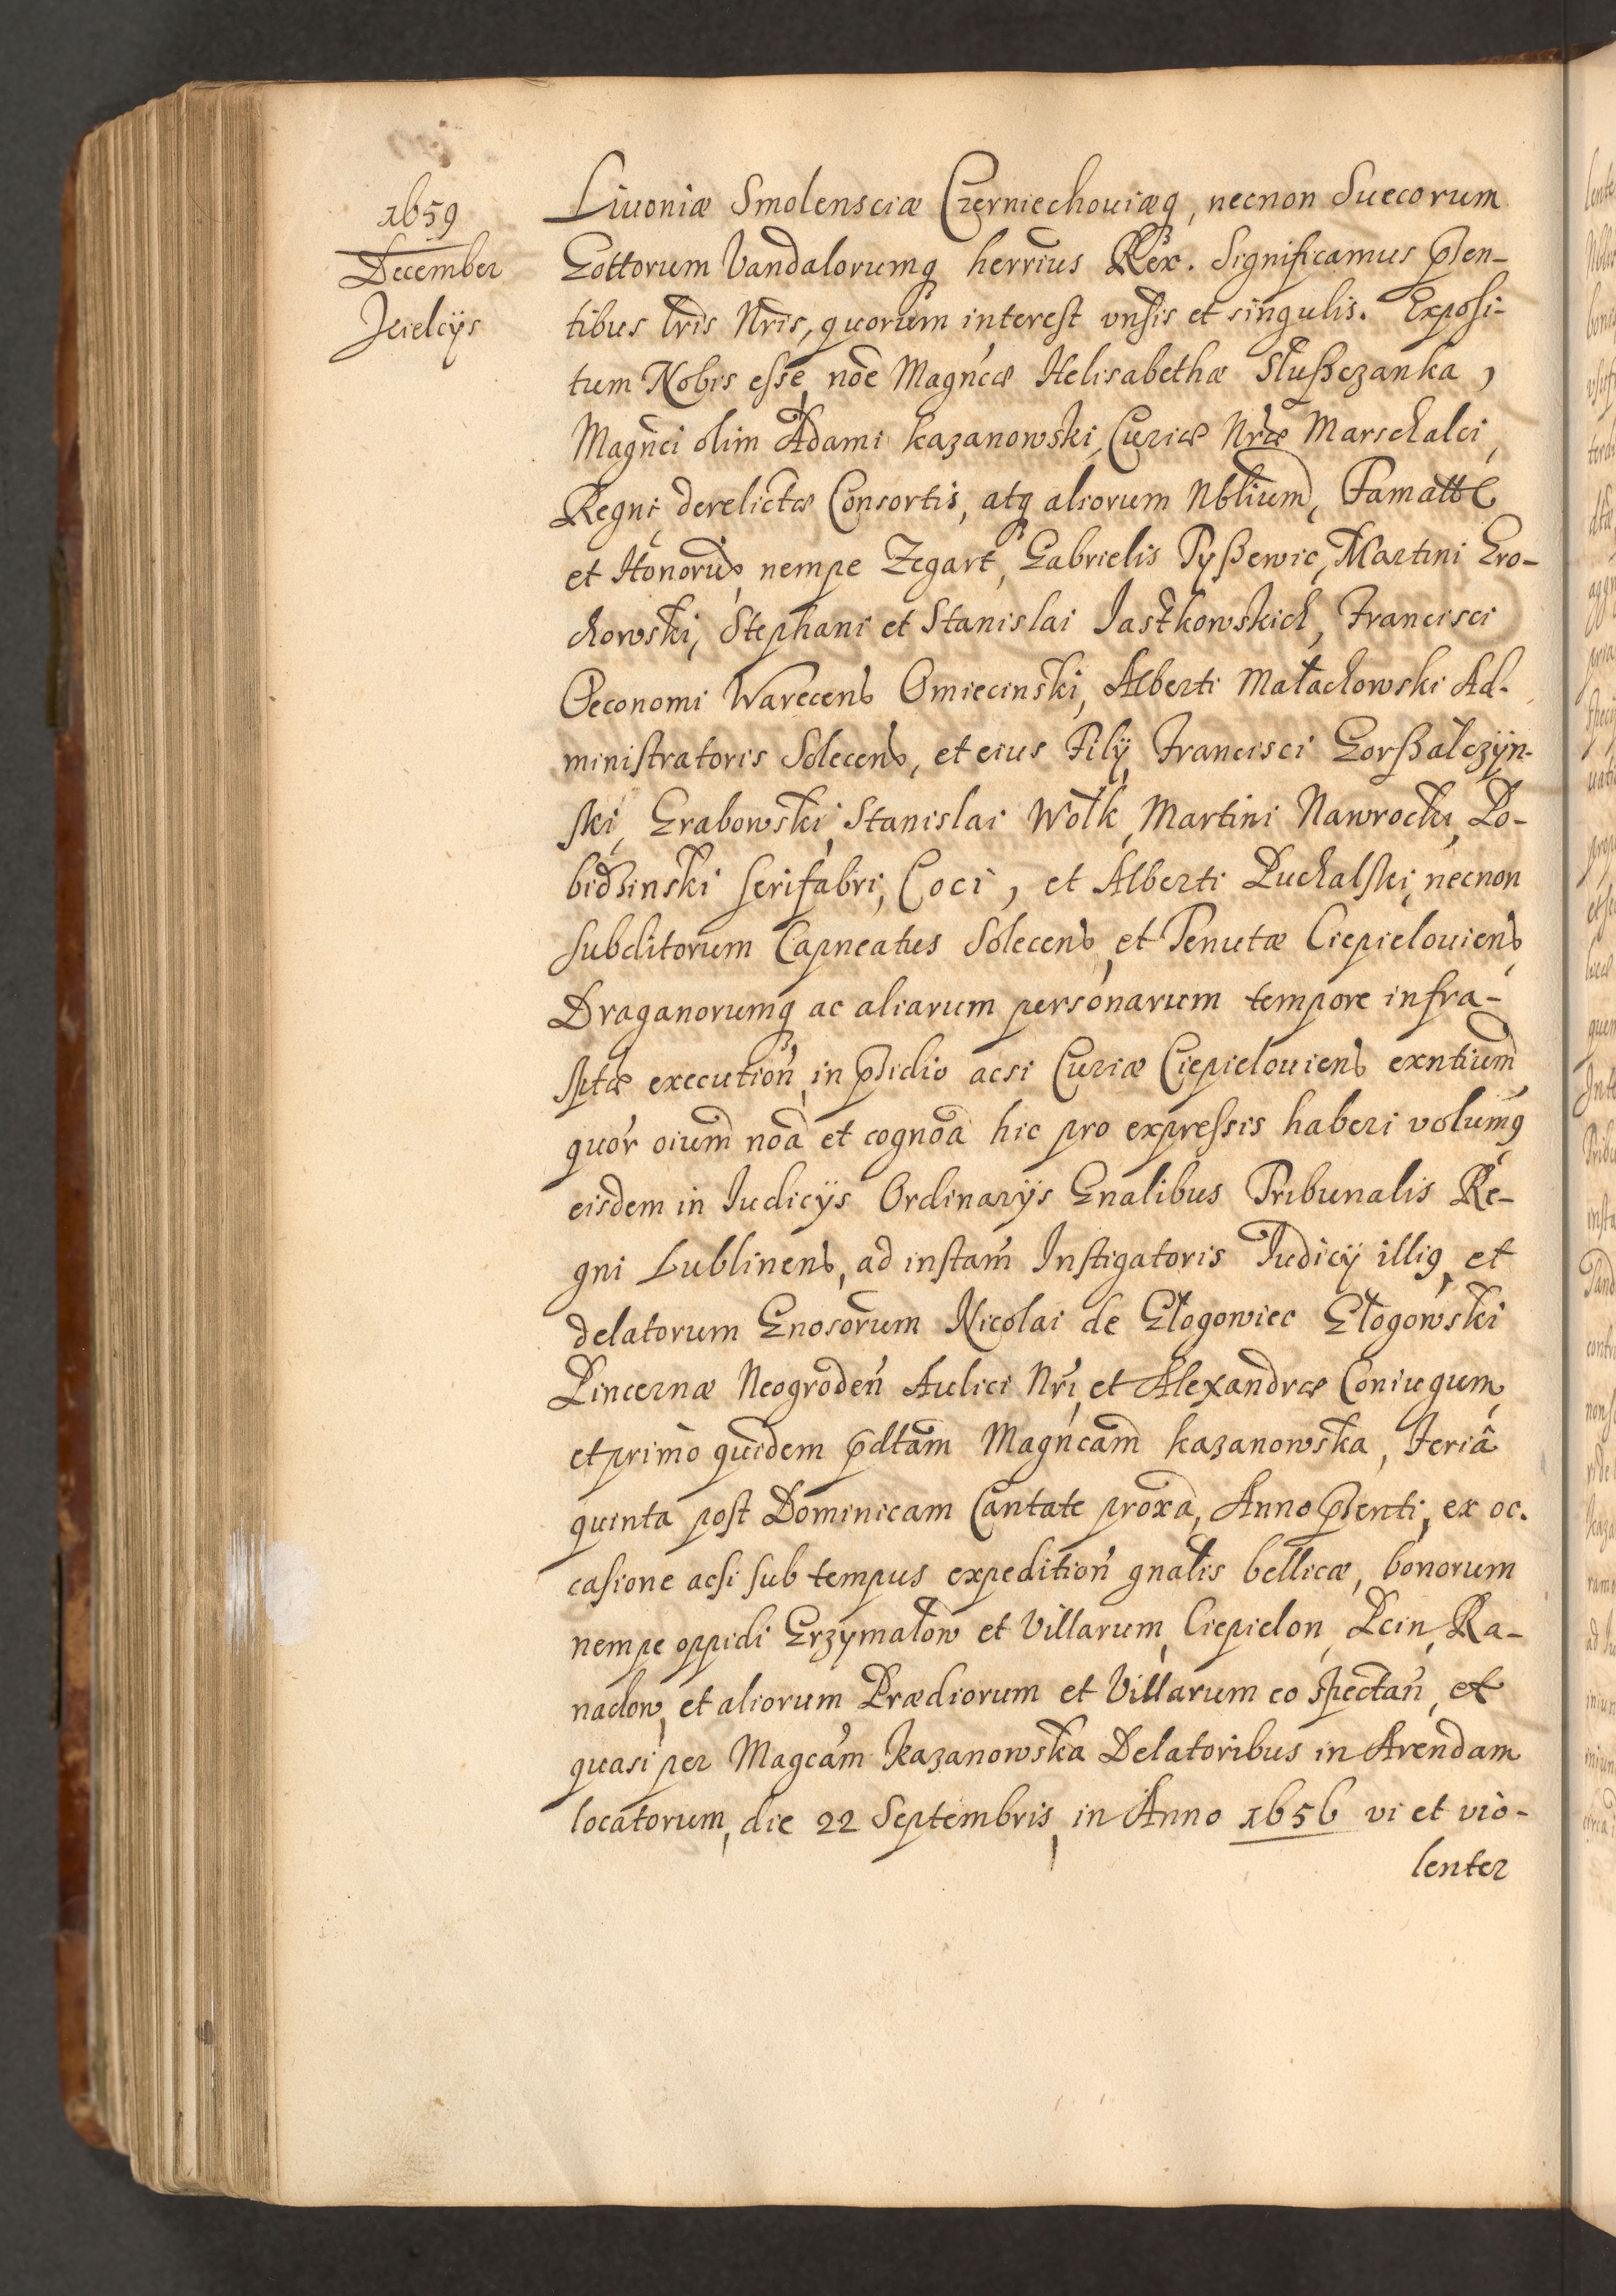 1659
December
Kielcÿs
Livoniæ Smolensciæ Czerniechoviæq, necnon Suecorum
Gottorum Vandalorumq herrius Rex. Significamus pñsen-
tibus lris Nris, quorum interest vnsis et singulis. Exposi-
tum Nobis esse, noe̅ Magncæ Helisabethæ Słuszczanka,
Magnci olim Adami Kazanowski, Curiæ Nræ Marschalci,
Regni derelictæ Consortis, atq aliorum Nblium, Famatt
et Honoru, nempe Zegart, Gabrielis Pyszewic, Martini Gro-
chowski, Stephani et Stanislai Jastkowskich, Francisci
Œconomi Warecens Omiecinski, Alberti Małachowski Ad-
ministratoris Solecens, et eius Filÿ, Francisci Gorszalczÿn-
ski, Grabowski, Stanislai Wołk, Martini Nawrocki, Do-
bidzinski serifabri, Coci, et Alberti Puchalski, necnon
subditorum Capneatus Solecens, et Tenutæ Ciepielouiens,
Draganorumq ac aliarum personarum tempore infra-
sptæ execution, in pñsidio acsi Curiæ Ciepielouiens exntium
quor oium noa et cognoa hic pro expressis haberi volumq
eisdem in Iudicÿs Ordinarÿs Gnalibus Tribunalis Re-
gni Lublinens, ad instam Instigatoris Iudicÿ illiq, et
delatorum Gnosorum Nicolai de Głogowiec Głogowski
Pincernæ Neogroden Aulici Nri, et Alexandræ Coniugum,
et primo quidem pdtam Magncam Kazanowska, Feriâ
quinta post Dominicam Cantate proxa, Anno pñsenti, ex oc-
casione acsi sub tempus expedition gnalis bellicæ, bonorum
nempe oppidi Grzymałow et Villarum, Ciepielon, Pcin, Ka-
nachow, et aliorum Prædiorum et Villarum eo spectan, et
quasi per Magcam Kazanowska Delatoribus in Arendam
locatorum, die 22 Septembris, in Anno 1656 vi et vio-
lenter